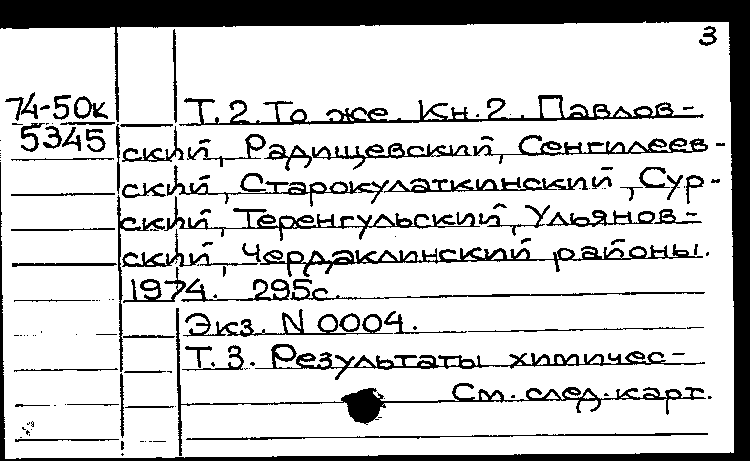 3
74-50к Т.2. То же. Кн.2. Павлов-
5345 ский, Радищевский, Сенгилеев-
ский, Старокулаткинский, Сур-
ский, Теренгульский, Ульянов-
ский, Чердаклинский районы.
1974. 295с.
Экз. N 0004.
Т.3. Результаты химичес-
См. след. карт.